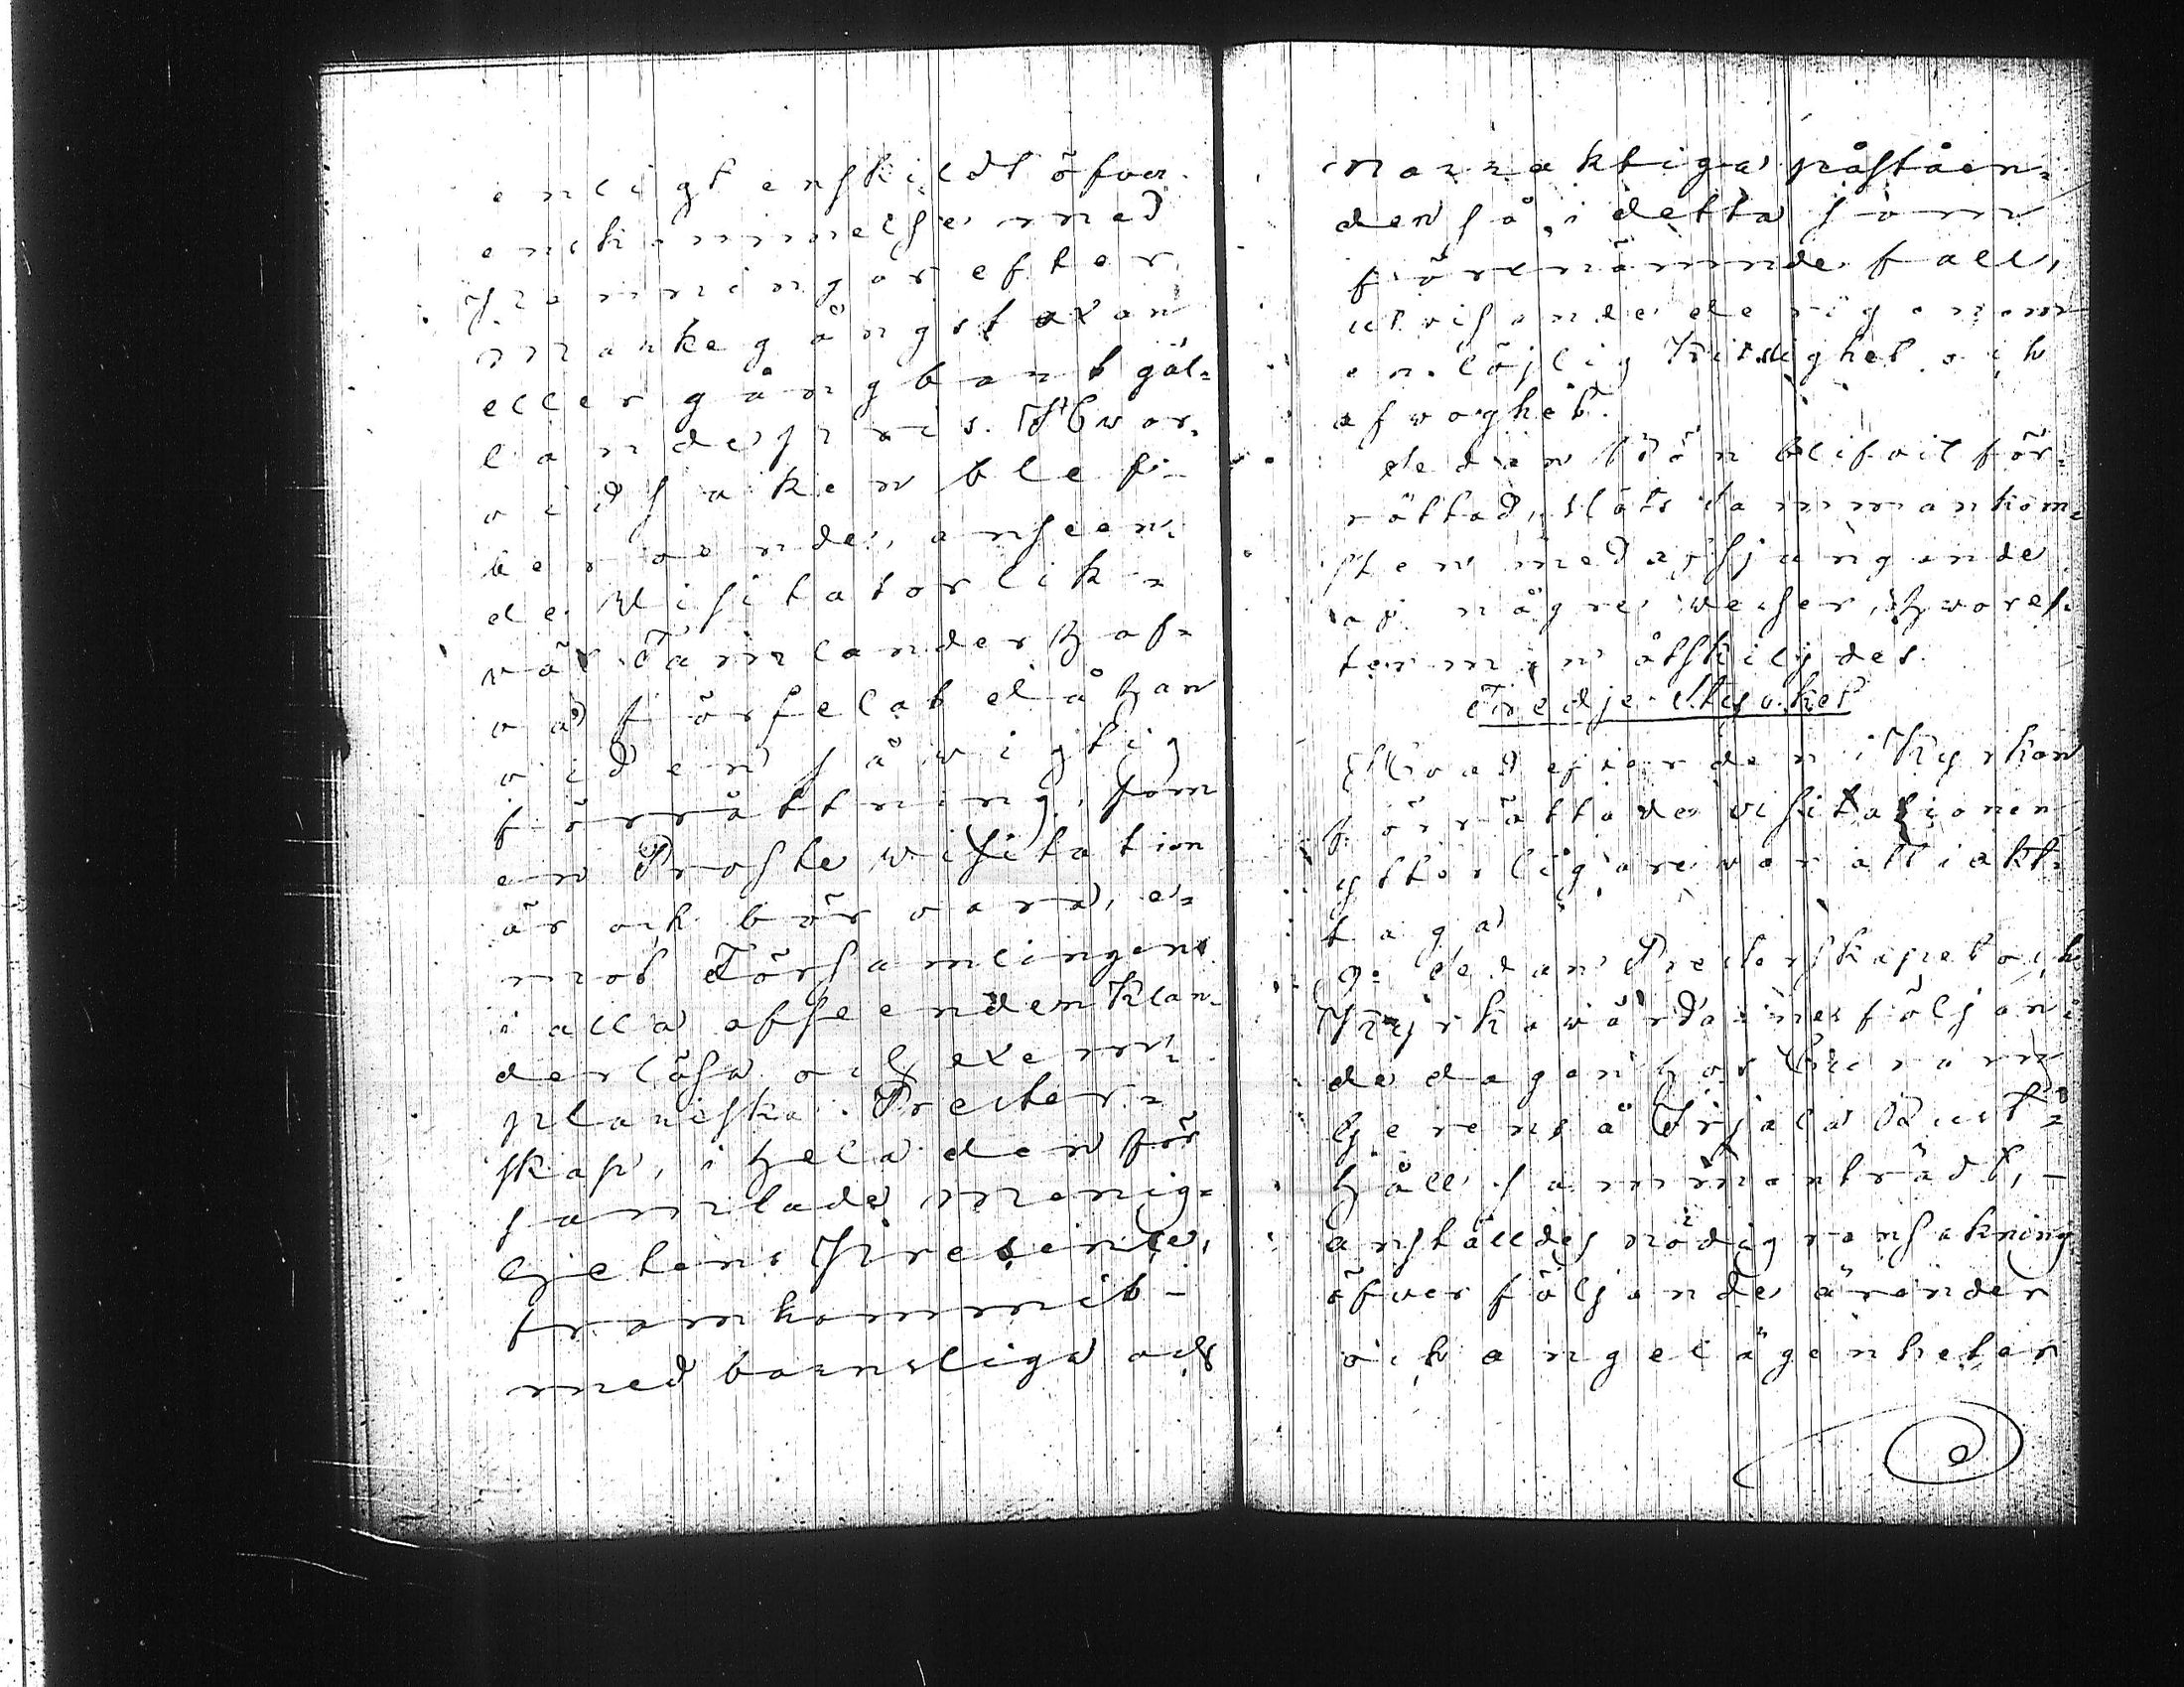 enligt enskildt öfver-
enskommelse med
Hemningar efter
markegångstaxan
eller gångbart gäl-
lande pris. Hwar-
vid saken blef
beroende, anseen-
de Visitator lik-
väl Tämlander haf-
va förfelat då han
viden så wigtig
förrättning, som
en Proste wisitation
är och bör vara, e-
mot Församlingens
i alla afseenden klan-
derlösa och exem-
plariska Prester-
skap, i hela den för
samlade menig-
hetens Presence,
framkommit
med barnsliga och
narraktiga påståen-
den så i detta som
förenämnde fall,
utvisande derigenom
en löjlig Kitslighet och
afwoghet.
Sedan Bön blifvit för-
rättad, slöts samankom-
sten med afsjungande
af någre werser, hware f-
ter man åtskiljdes.
Tredje Stycket
Hvad efter den i Kyrkan
förrättade visitationen
ytterligare war att iakt-
taga
Sedan Presterskapet och
Kyrkowärdarne följan-
de dagen hos
å Irjala Rust-
håll sammanträdt,
anställdes nödig ransakning
öfver följande ärender
och angelägenheter